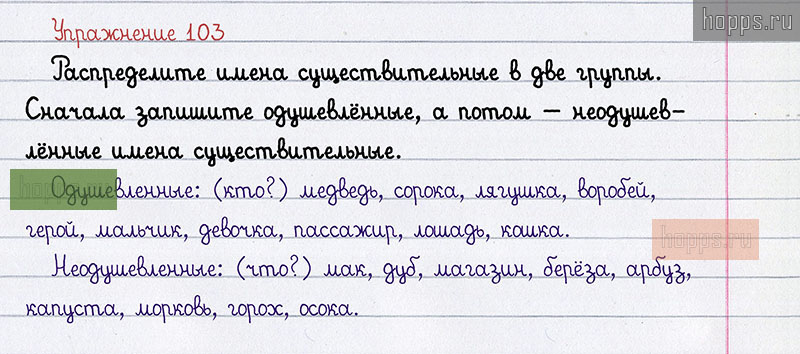 hopps.ru
Упражнение 103
Распределите имена существительные в две группы.
Сначала запишите одушевлённые, а потом — неодушев-
лённые имена существительные.
Одушевленные: (кто?) медведь, сорока, лягушка, воробей,
герой, мальчик, девочка, пассажир, лошадь, кошка.
hopps.ru
Неодушевленные: (что?) мак, дуб, магазин, берёза, арбуз,
капуста, морковь, горох, осока.